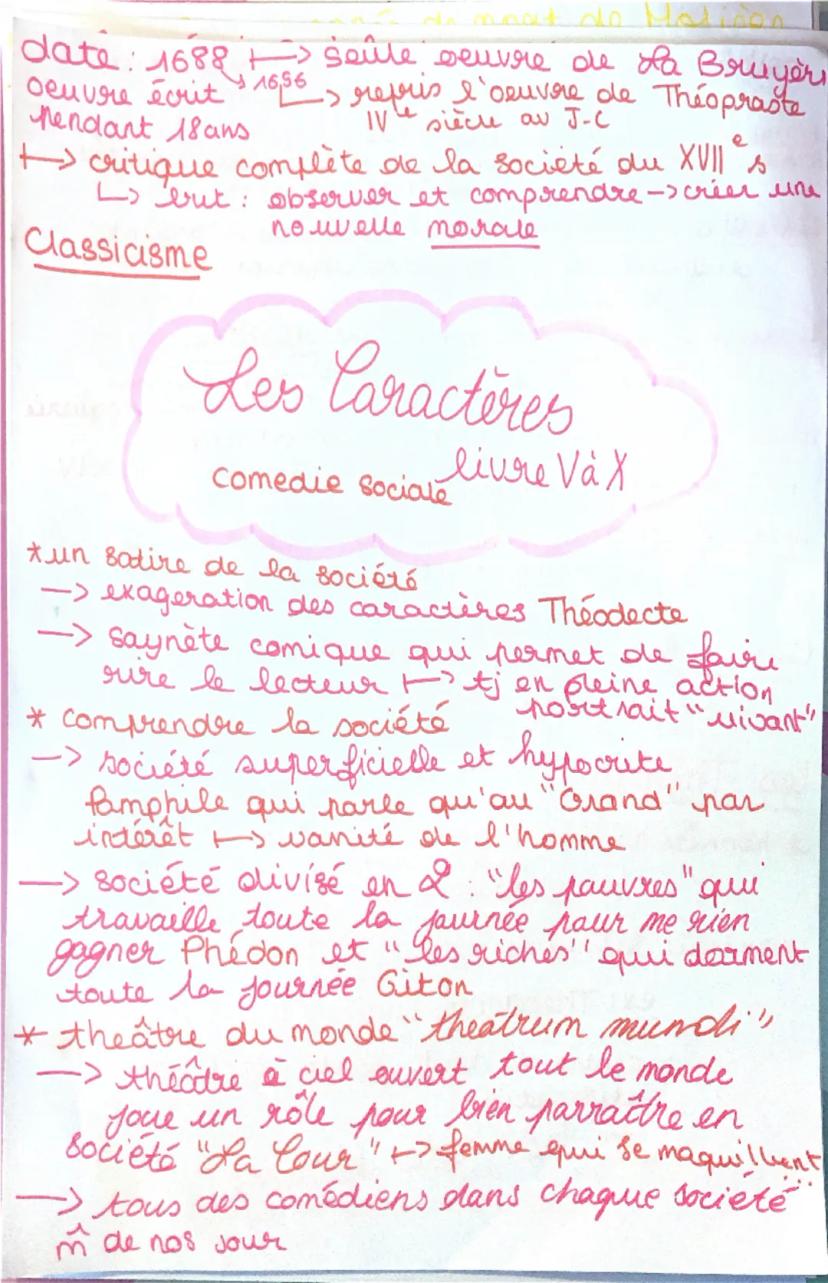 date : 1688 ↦ seule oeuvre de La Bruyère
↳ 1696
oeuvre écrit ↳ repris l'oeuvre de Théopraste
pendant 18ans IVe siècle av J-C
↦ critique complète de la société du XVIIe s
↳ but : observer et comprendre → créer une
nouvelle morale
Classicisme
Les Caractères
livre V à X
comedie sociale
*un satire de la société
→ exageration des caractères Théodecte
→ saynète comique qui permet de faire
rire le lecteur ↦ tj en pleine action
portrait "vivant"
* comprendre la société
→ société superficielle et hypocrite
Pamphile qui parle qu'au "Grand" par
intérêt ↦ vanité de l'homme
→ société divisé en 2 : "les pauvres" qui
travaille toute la journée pour ne rien
gagner Phédon et "les riches" qui dorment
toute la journée Giton
* theâtre du monde "theatrum mundi"
→ théâtre à ciel ouvert tout le monde
joue un rôle pour bien parraître en
société "La Cour" ↦ femme qui se maquillent...
→ tous des comédiens dans chaque société
m̂ de nos jour